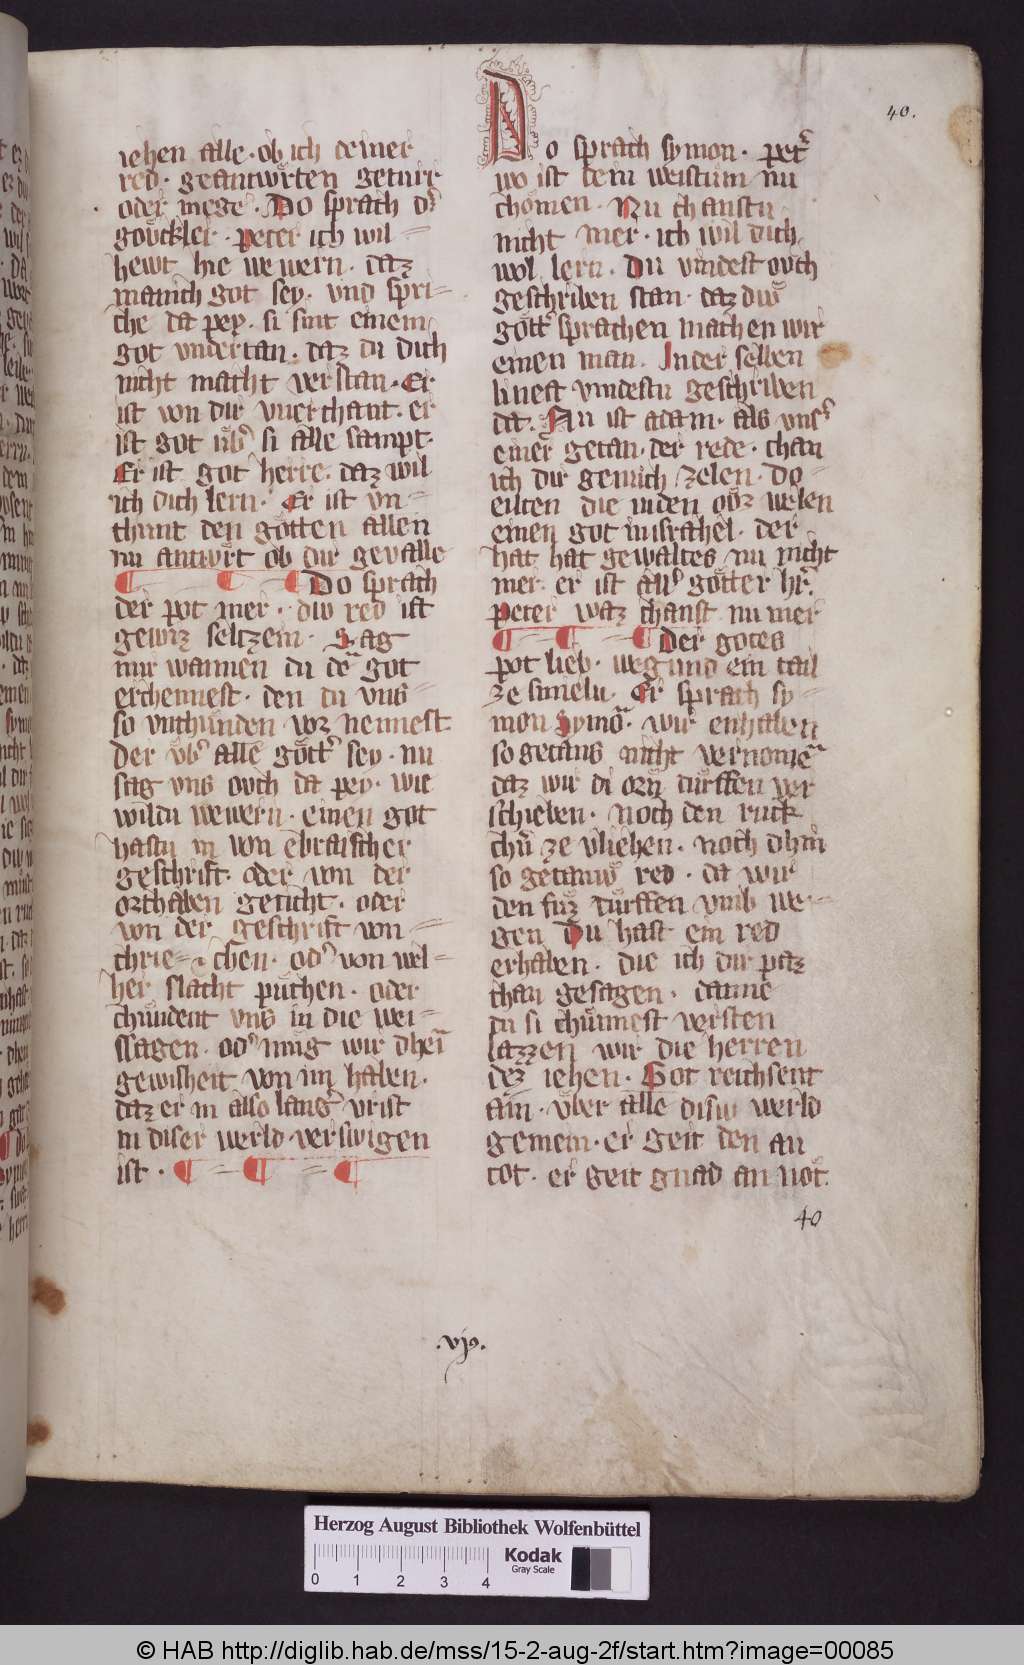 40.
iehen alle · ob ich deiner
red · geantwͤrten geturr
oder mege · Do sprach dͬ
goͮckler · Peter ich wil
hewt hie bewern · daz
manich got sey · vnd spri=
che da pey · si sint einem
got vndertan · daz du dich
nicht macht verstan · Er
ist von dir vnerchant · er
ist got uͤbͬ si alle sampt ·
Er ist got herre · daz wil
ich dich lern · Er ist vn=
chunt den goͤtten allen
nu antwͤrt ob dir geualle
¶ = ¶ = ¶ Do sprach
der pot mer · diw red ist
gewiz seltzein · Sag
mir wannen du dē got
erchennest · den du vns =
so vnchuͤnden vor nennest
Der vͤbͬ alle goͤttͬ sey · nu
sag vns ovch da pey · wie
wildu bewern · einen got
hastu in von ebraischer
geschrift · oder von der
orthaben gericht · oder
von der geschrift von =
chrie=chen · odͬ von wel=
her slacht puͤchen · oder
chuͤndent vns in die wei=
ssagen · odͬ muͤg wir dhein
gewisheit von im haben ·
daz er in also langͬ vrist
in diser werld · verswigen
ist · ¶ = ¶ = ¶
Do sprach symon · petͬ
wo ist dein weistum nu
chomen · Nu chanstu
nicht mer · ich wil dich
wol lern · Du vindest ovch
geschriben stan · daz diw
goͤttͬ sprachen machen wir
einen man · In der selben
liuest vindestu geschriben
da · Nu ist adam · als vnsͬ
einer getan · der rede · chan
ich dir genuch zelen · Do =
eilten die iuden ovz welen
einen got in israhel · der
hat hat gewaltes nu nicht
mer · er ist allͬ goͤtter hͬr ·
Peter waz chanst nu mer
¶ = ¶ = ¶ Der gotes
pot lieb · wegund ein tail
ze smieln · Er sprach sy=
mon Symō · wir enhaben
so getans nicht vernomē
daz wir di orn duͤrffen ver
schieben · noch den ruck
chͤr ze vliehen · noch dhein
so getaniw red · da wir
den fuz duͤrffen vmb we=
gen Du hast ein red
erhaben · die ich dir paz
chan gesagen · danne
du si chuͤnnest versten
lazzen wir die herren
dez iehen · Got reichsent
ain · vͤber alle disiw werld
gemein · er geit den an
tot · er geit gnad an not ·
40
· vjꝰ ·
Herzog August Bibliothek Wolfenbüttel
0 1 2 3 4
Kodak
Gray Scale
© HAB http://diglib.hab.de/mss/15-2-aug-2f/start.htm?image=00085